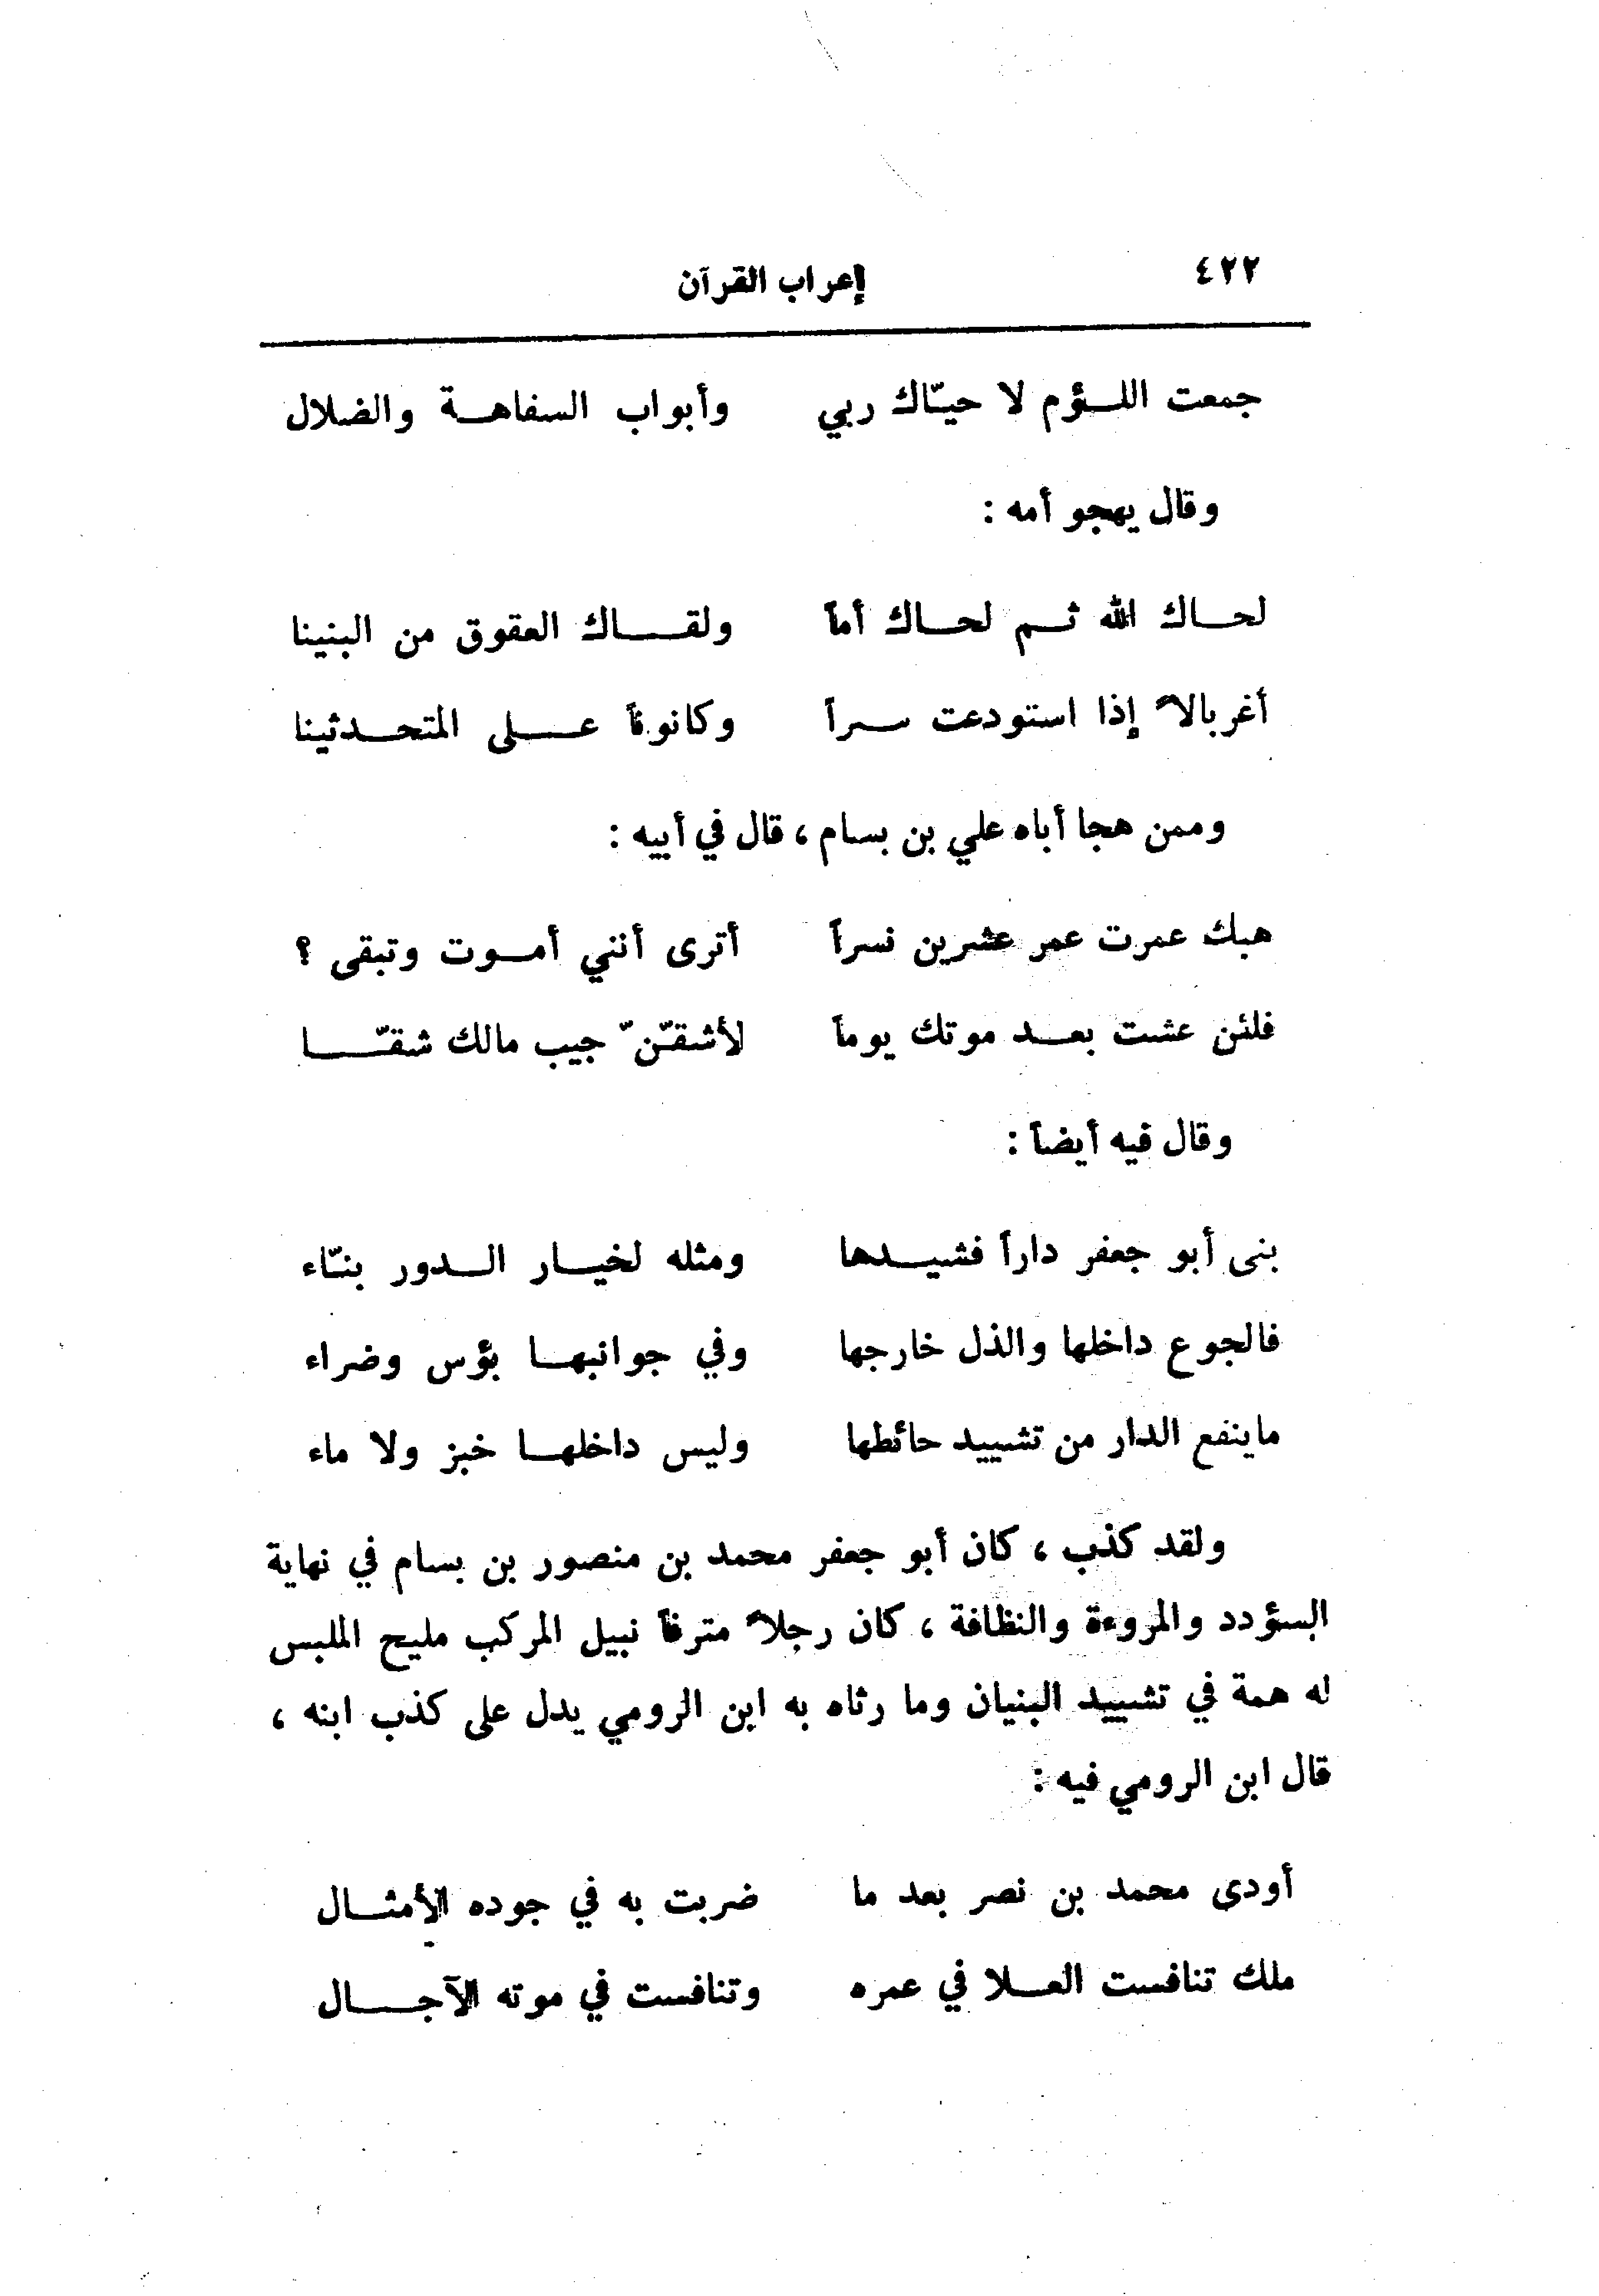 ٤٢٢ إعراب القرآن
جمعت اللؤم لا حيّاك ربي وأبواب السفاهة والضلال
وقال يهجو أمه :
لحاك الله ثم لحاك أماً ولقاك العقوق من البنينا
أغربالاً إذا استودعت سراً وكانوناً على المتحدثينا
وممن هجا أباه علي بن بسام ، قال في أبيه :
هبك عمرت عمر عشرين نسراً أترى أنني أموت وتبقى ؟
فلئن عشت بعد موتك يوماً لأشقّنّ جيب مالك شقّا
وقال فيه أيضاً :
بنى أبو جعفر داراً فشيدها ومثله لخيار الدور بنّاء
فالجوع داخلها والذل خارجها وفي جوانبها بؤس وضراء
ماينفع الدار من تشييد حائطها وليس داخلها خبز ولا ماء
ولقد كذب ، كان أبو جعفر محمد بن منصور بن بسام في نهاية
السؤدد والمروءة والنظافة ، كان رجلاً مترفاً نبيل المركب مليح الملبس
له همة في تشييد البنيان وما رثاه به ابن الرومي يدل على كذب ابنه ،
قال ابن الرومي فيه :
أودى محمد بن نصر بعد ما ضربت به في جوده الأمثال
ملك تنافست العلا في عمره وتنافست في موته الآجال